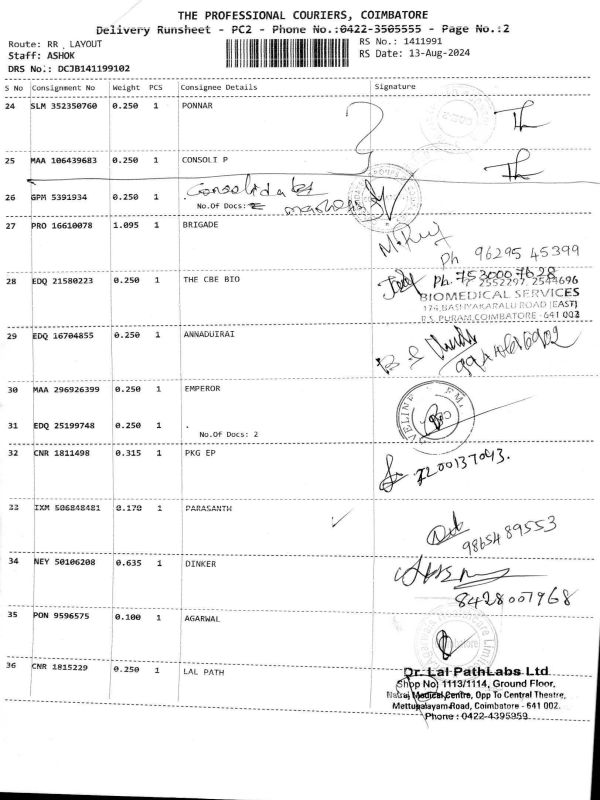 THE PROFESSIONAL COURIERS, COIMBATORE
Delivery Runsheet - PC2 - Phone No.:0422-3505555 - Page No.:2
Route: RR , LAYOUT
RS No.: 1411991
Staff: ASHOK
RS Date: 13-Aug-2024
DRS No.: DCJB141199102
S No Consignment No Weight PCS Consignee Details Signature
24 SLM 352350760 0.250 1 PONNAR
25 MAA 106439683 0.250 1 CONSOLI P
26 GPM 5391934 0.250 1 . Consolidates
No.Of Docs: 2
27 PRO 16610078 1.095 1 BRIGADE
Ph 96295 45399
28 EDQ 21580223 0.250 1 THE CBE BIO
Ph. 7530007628
2552297, 2544696
BIOMEDICAL SERVICES
174,BASHYAKARALU ROAD (EAST)
R.S. PURAM,COIMBATORE - 641 002
29 EDQ 16704855 0.250 1 ANNADUIRAI
30 MAA 296926399 0.250 1 EMPEROR
31 EDQ 25199748 0.250 1 .
No.Of Docs: 2
32 CNR 1811498 0.315 1 PKG EP
7200137043.
33 IXM 506848481 0.170 1 PARASANTH
9865489553
34 NEY 50106208 0.635 1 DINKER
8428007968
35 PON 9596575 0.100 1 AGARWAL
36 CNR 1815229 0.250 1 LAL PATH
Dr. Lal PathLabs Ltd
Shop No: 1113/1114, Ground Floor,
Nataj Medical Centre, Opp To Central Theatre,
Mettupalayam Road, Coimbatore - 641 002.
Phone : 0422-4395959